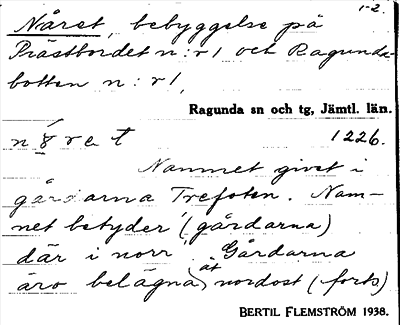 1-2.
Nåret, bebyggelse på
Prästbordet n:r 1 och Ragunda-
botten n:r 1,
Ragunda sn och tg, Jämtl. län.
1226.
Namnet givet i
gårdarna Trefoten. Nam-
net betyder (gårdarna)
där i norr. Gårdarna
äro belägna åt nordost (forts)
BERTIL FLEMSTRÖM 1938.